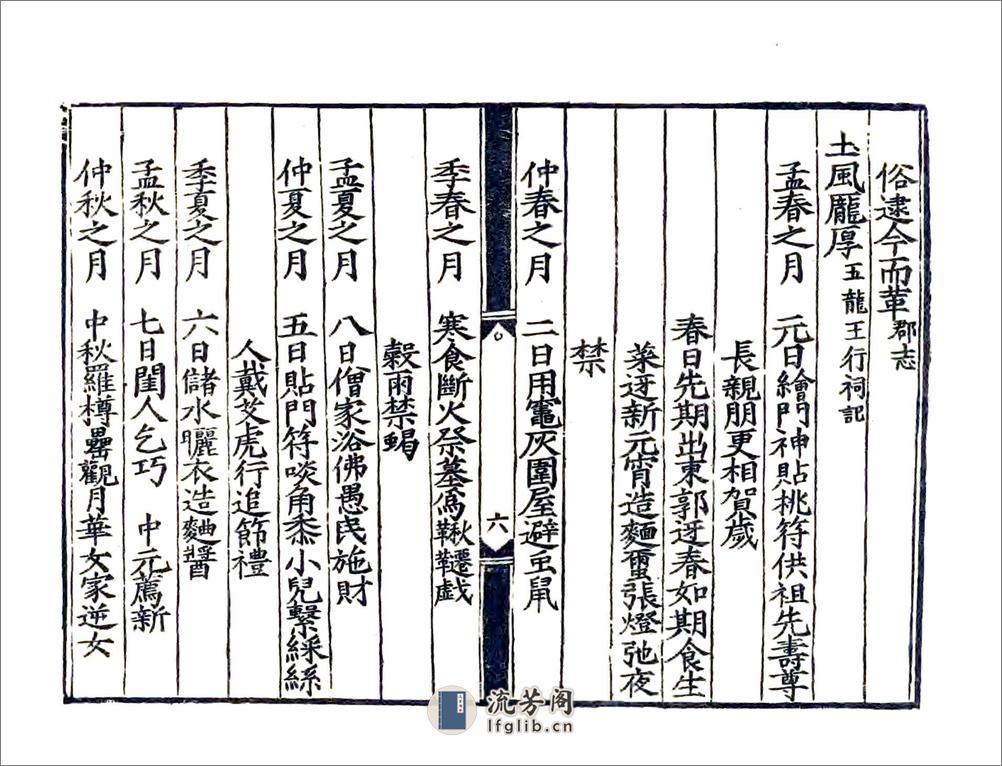 俗逮今而革郡志
土風龎厚五龍王行祠記
孟春之月　元日繪門神貼桃符供祖先壽尊
長親朋更相賀歲
春日先期出東郭迓春如期食生
菜迓新元宵造麵蠒張燈弛夜
禁
仲春之月　二日用竈灰圍屋避虫鼠
六
季春之月　寒食斷火祭墓爲鞦韆戱
榖雨禁蝎
孟夏之月　八日僧家浴佛愚民施財
仲夏之月　五日貼門符啖角黍小兒繫綵絲
人戴艾虎行追節禮
季夏之月　六日儲水曬衣造麯醬
孟秋之月　七日閨人乞巧　中元薦新
仲秋之月　中秋羅樽罍觀月華女家逆女
流芳阁
lfglib.cn